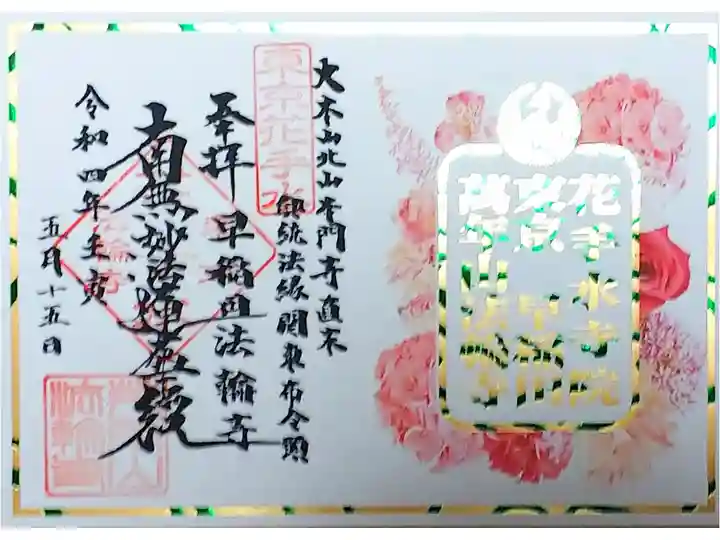 花手水寺院
東京早稲田
萬年山法輪寺
大本山北山本門寺直末
法縁関東布令
東京花手水
奉拝 早稲田法輪寺
南無妙法蓮華経
令和四年壬寅
五月十五日